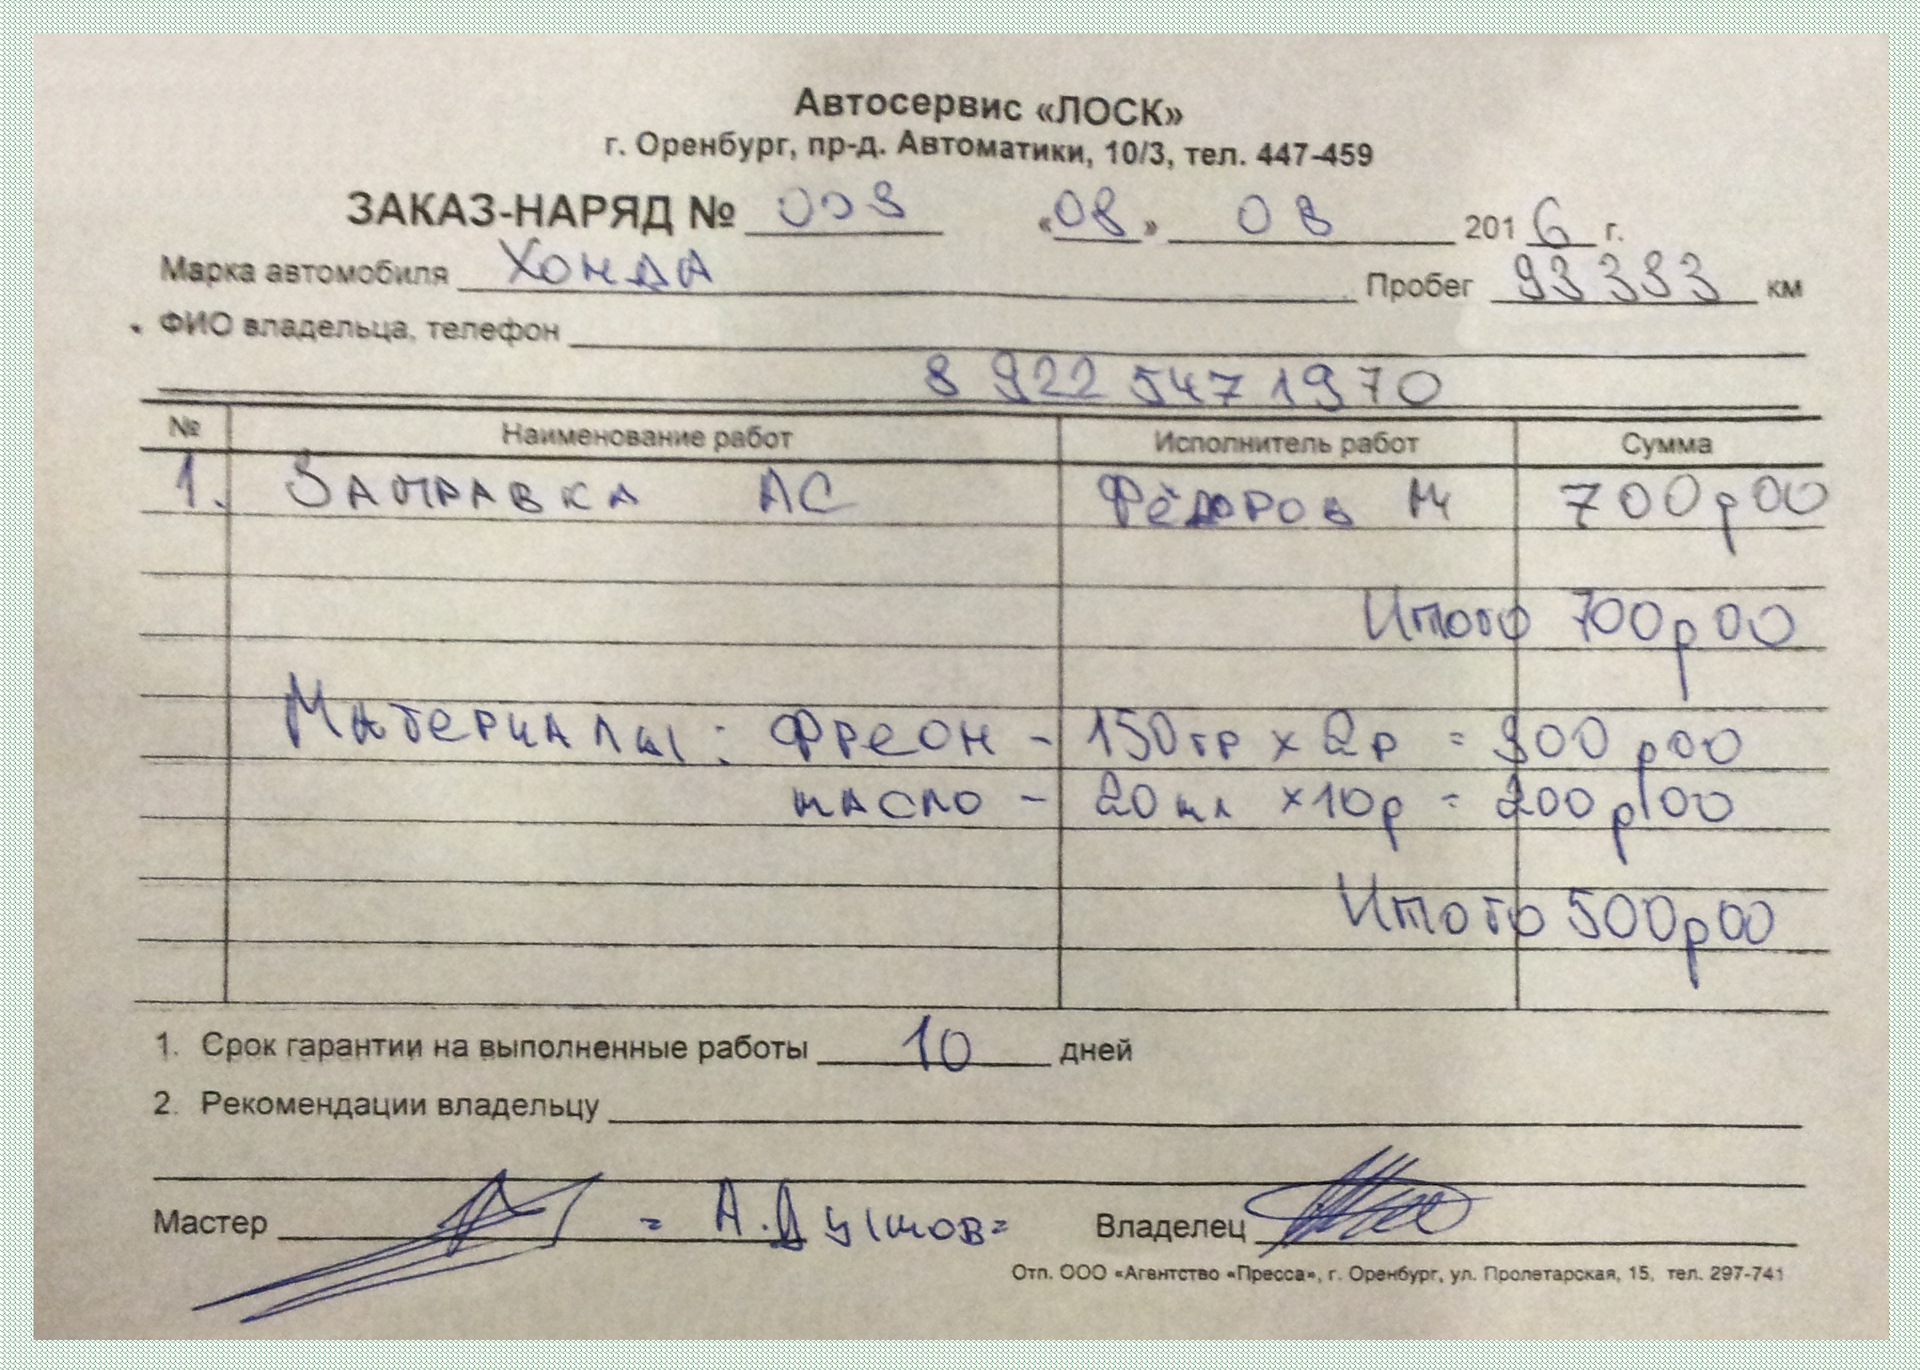 Автосервис «ЛОСК»
г. Оренбург, пр-д. Автоматики, 10/3, тел. 447-459
ЗАКАЗ-НАРЯД № 003 «08» 08 2016 г.
Марка автомобиля Хонда Пробег 93 393 км
ФИО владельца, телефон
8 922 547 1970
№ Наименование работ Исполнитель работ Сумма
1. Заправка АС Фёдоров М 700р00
Итого 700р00
Материалы: Фреон - 150гр х 2р = 300р00
масло - 20мл х10р = 200р00
Итого 500р00
1. Срок гарантии на выполненные работы 10 дней
2. Рекомендации владельцу
Мастер = А. =
Владелец
Отп. ООО «Агентство «Пресса», г. Оренбург, ул. Пролетарская, 15, тел. 297-741